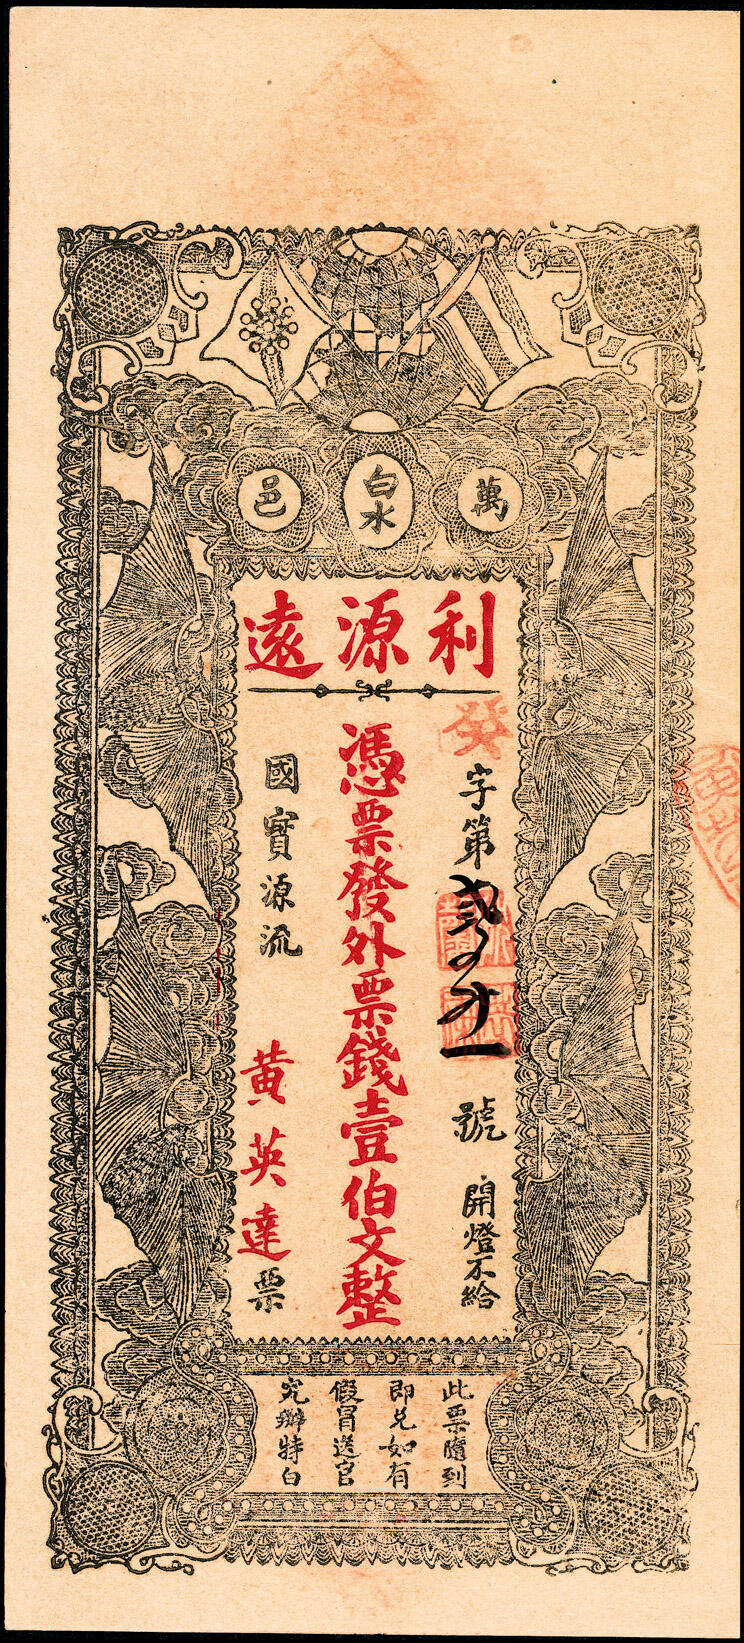 萬泉邑
利源遠
發字第貳
號
開燈不給
憑票發外票錢壹伯文整
國寳源流
黃英達票
此票隨到
即兑如有
假冒送官
究辦特白